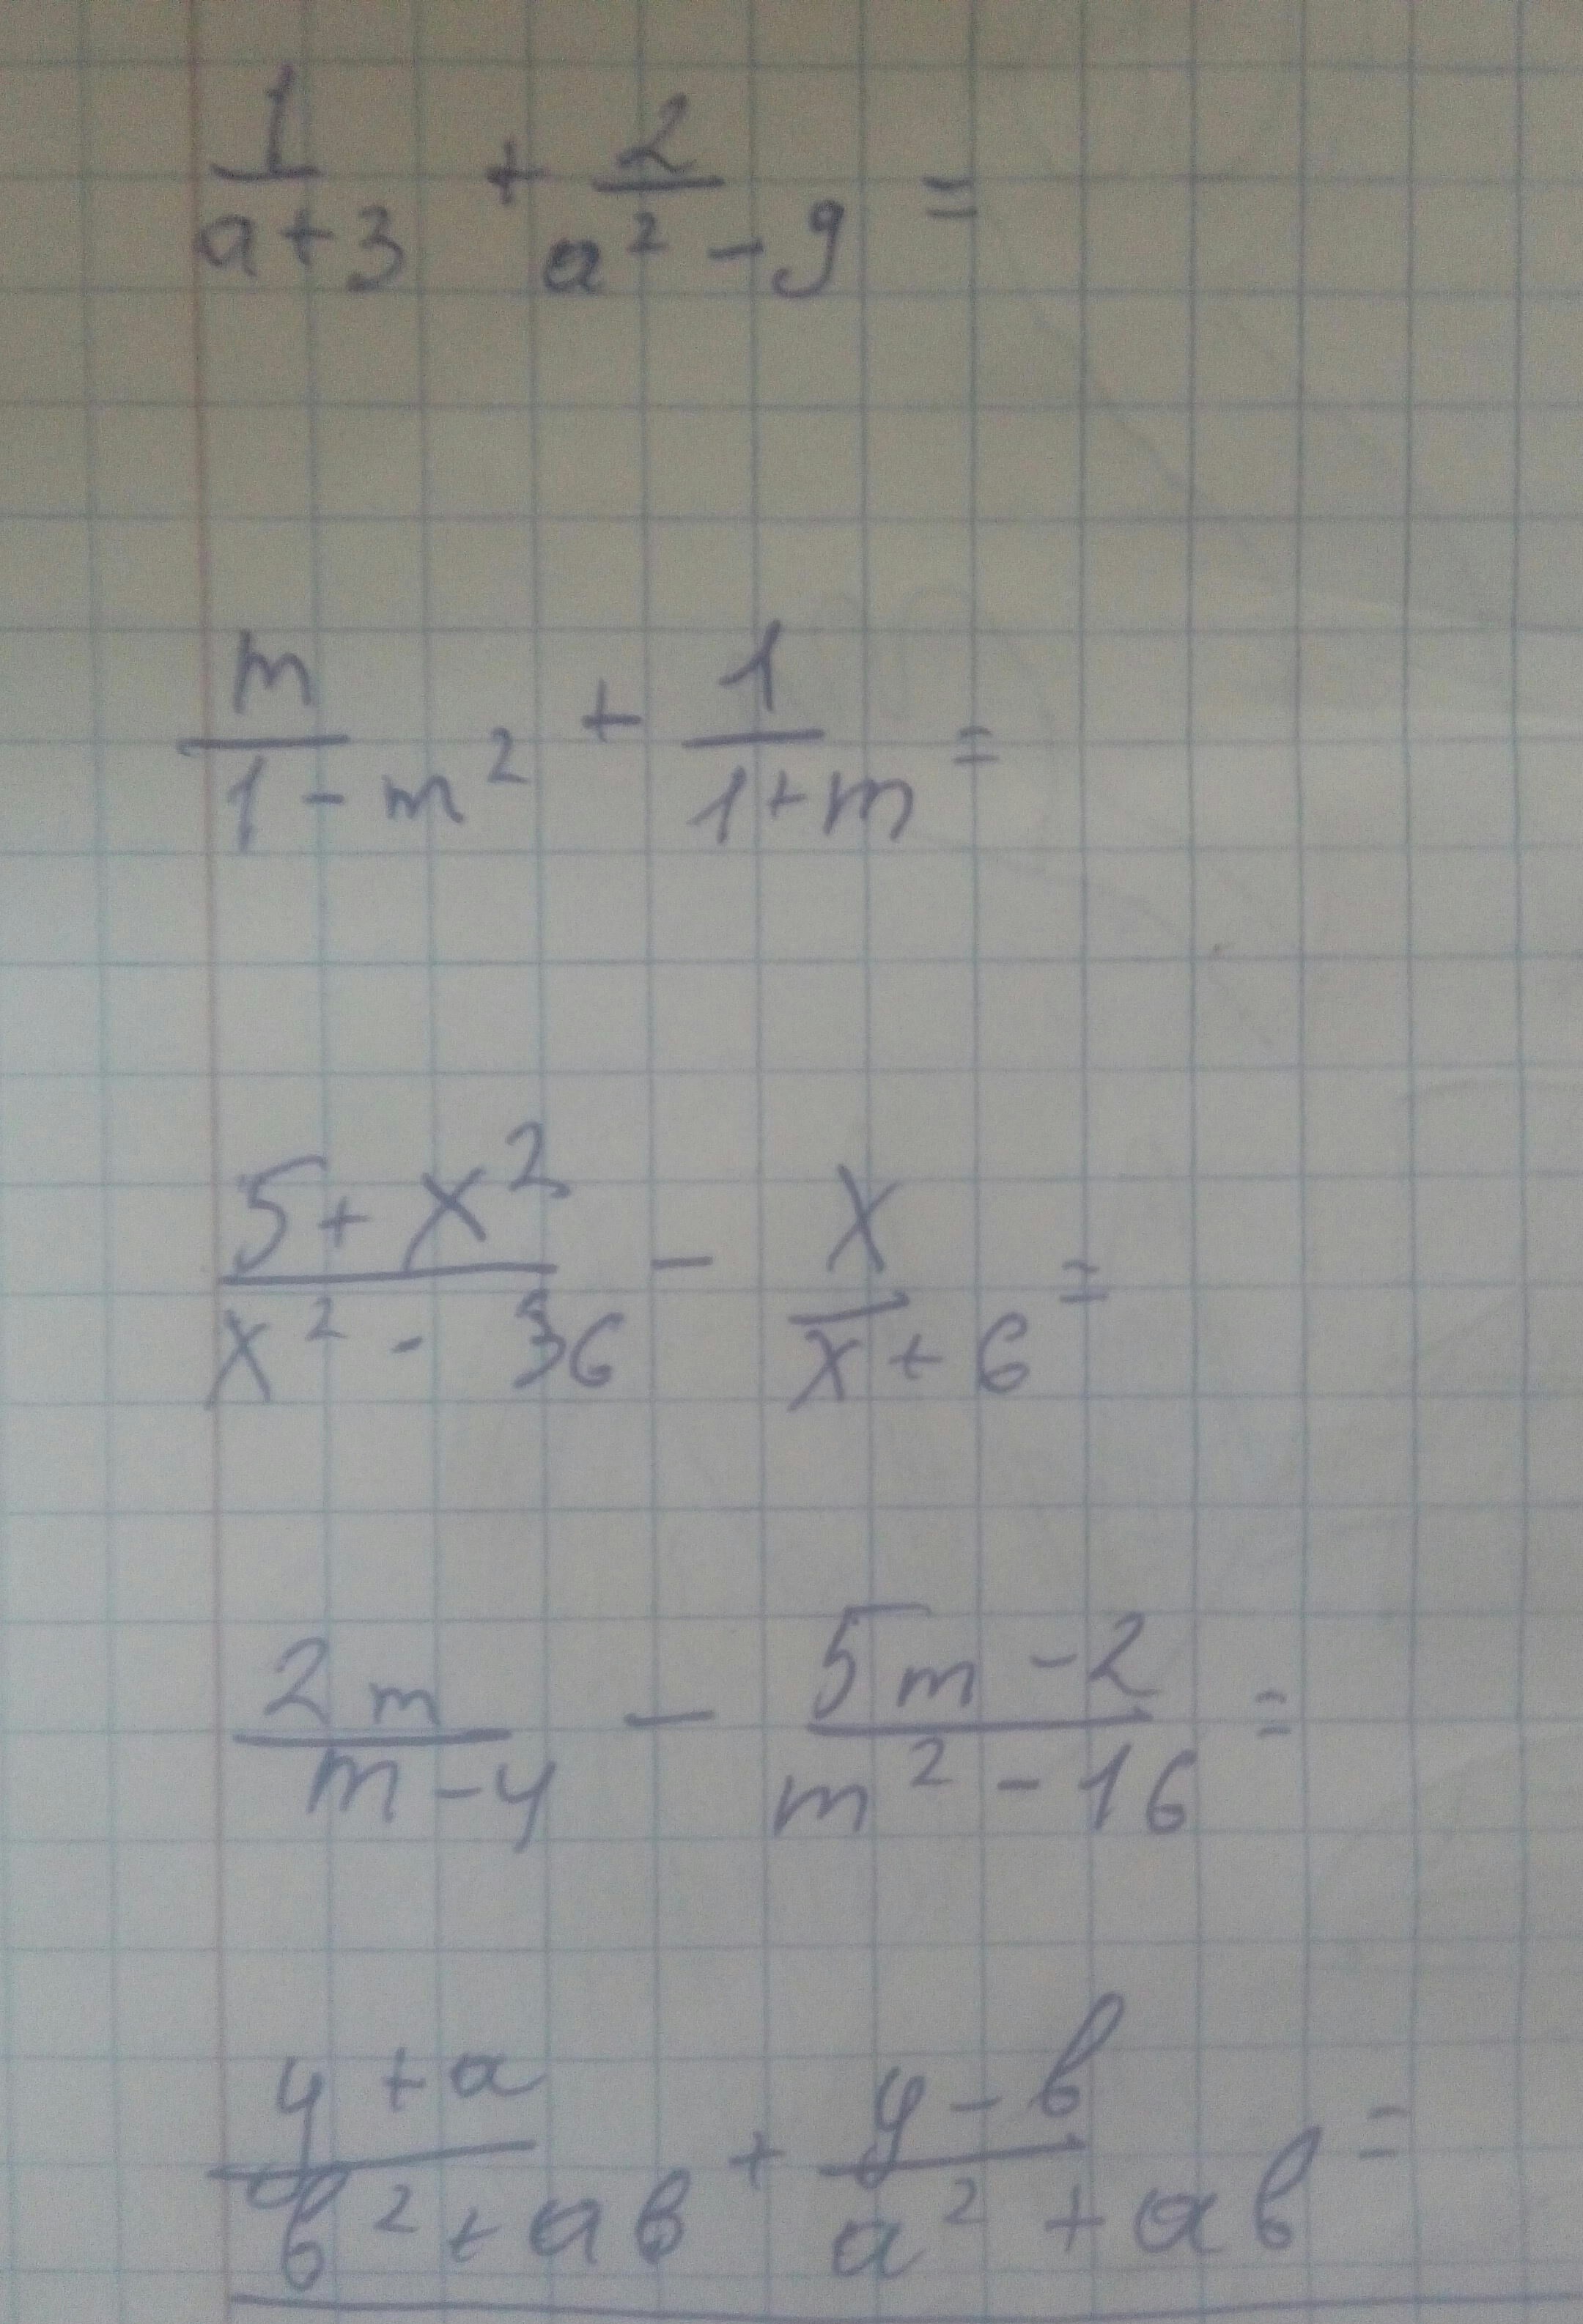 1/(a+3) + 2/(a²-9) =
m/(1-m²) + 1/(1+m) =
(5+x²)/(x²-36) - x/(x+6) =
2m/(m-4) - (5m-2)/(m²-16) =
(y+a)/(b²+ab) + (y-b)/(a²+ab) =